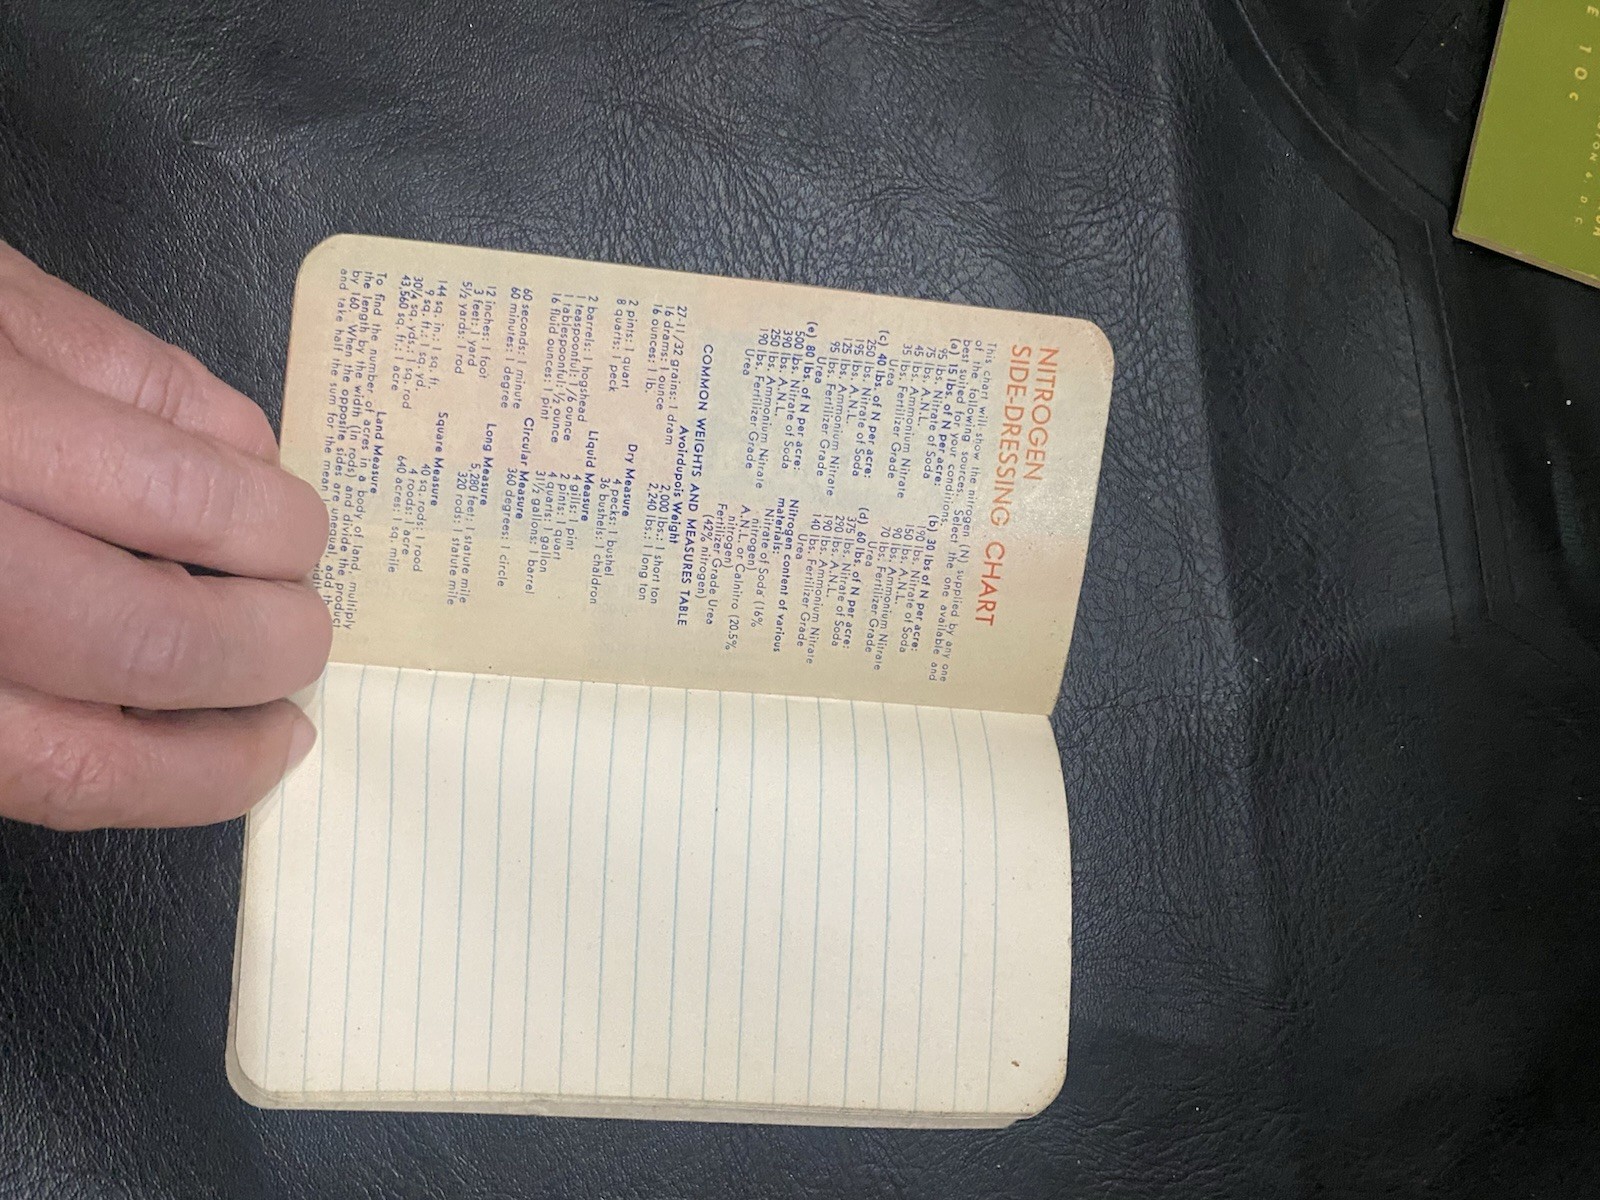 NITROGEN
SIDE-DRESSING CHART
This chart will show the nitrogen (N) supplied by any one
of the following sources. Select the one available and
best suited for your conditions.
(a) 15 lbs. of N per acre:
95 lbs. Nitrate of Soda
75 lbs. A.N.L.
45 lbs. Ammonium Nitrate
35 lbs. Fertilizer Grade
Urea
(c) 40 lbs. of N per acre:
250 lbs. Nitrate of Soda
195 lbs. A.N.L.
125 lbs. Ammonium Nitrate
95 lbs. Fertilizer Grade
Urea
(e) 80 lbs. of N per acre:
500 lbs. Nitrate of Soda
390 lbs. A.N.L.
250 lbs. Ammonium Nitrate
190 lbs. Fertilizer Grade
Urea
(b) 30 lbs of N per acre:
190 lbs. Nitrate of Soda
150 lbs. A.N.L.
90 lbs. Ammonium Nitrate
70 lbs. Fertilizer Grade
Urea
(d) 60 lbs. of N per acre:
375 lbs. Nitrate of Soda
290 lbs. A.N.L.
190 lbs. Ammonium Nitrate
140 lbs. Fertilizer Grade
Urea
Nitrogen content of various
materials:
Nitrate of Soda (16%
nitrogen)
A.N.L. or Calnitro (20.5%
nitrogen)
Fertilizer Grade Urea
(42% nitrogen)
COMMON WEIGHTS AND MEASURES TABLE
Avoirdupois Weight
27-11/32 grains: 1 dram
16 drams: 1 ounce
16 ounces: 1 lb.
2,000 lbs.: 1 short ton
2,240 lbs.: 1 long ton
Dry Measure
2 pints: 1 quart
8 quarts: 1 peck
4 pecks: 1 bushel
36 bushels: 1 chaldron
Liquid Measure
2 barrels: 1 hogshead
1 teaspoonful: 1/6 ounce
1 tablespoonful: ½ ounce
16 fluid ounces: 1 pint
4 gills: 1 pint
2 pints: 1 quart
4 quarts: 1 gallon
31½ gallons: 1 barrel
Circular Measure
60 seconds: 1 minute
60 minutes: 1 degree
360 degrees: 1 circle
Long Measure
12 inches: 1 foot
3 feet: 1 yard
5½ yards: 1 rod
5,280 feet: 1 statute mile
320 rods: 1 statute mile
Square Measure
144 sq. in.: 1 sq. ft.
9 sq. ft.: 1 sq. yd.
30¼ sq. yds.: 1 sq. rod
43,560 sq. ft.: 1 acre
40 sq. rods: 1 rood
4 roods: 1 acre
640 acres: 1 sq. mile
Land Measure
To find the number of acres in a body of land, multiply
the length by the width (in rods) and divide the product
by 160. When the opposite sides are unequal, add them
and take half the sum for the mean